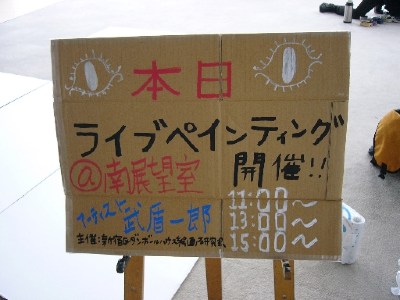 本日
ライブペインティング
@南展望室 開催!!
アーティスト 武盾一郎
11:00〜
13:00〜
15:00〜
主催:新宿区ダンボールハウス絵画研究会